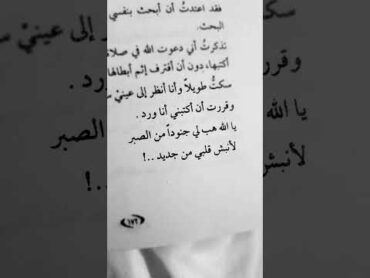 فقد اعتدتُ أن أبحث بنفسي
البحث.
تذكرتُ أني دعوت الله في صلا
أكتبها، دون أن أقترف إثم أبطالها
سكتُّ طويلاً وأنا أنظر إلى عينيْ س
وقررت أن أكتبني أنا ورد .
يا الله هب لي جنوداً من الصبر
لأنبش قلبي من جديد ..!
١٧٢